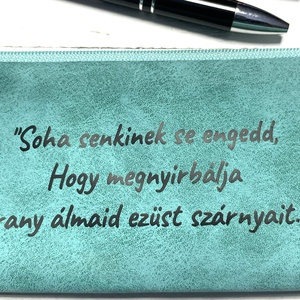 "Soha senkinek se engedd,
Hogy megnyirbálja
rany álmaid ezüst szárnyait.